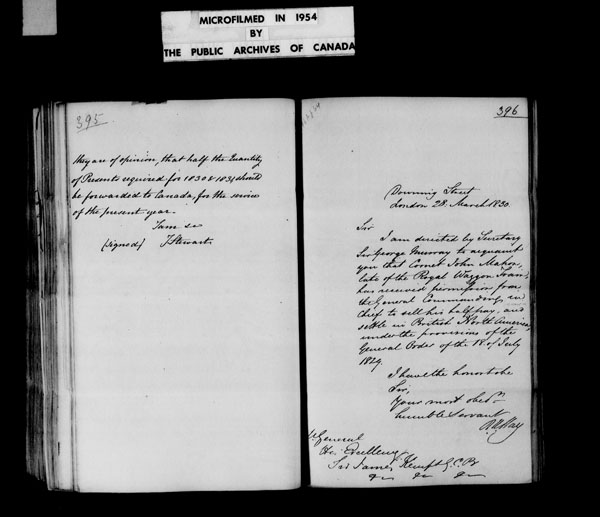 MICROFILMED IN 1954
BY
THE PUBLIC ARCHIVES OF CANADA
395
they are of opinion, that half the Quantity
of Presents required for 1830 & 1831 should
be forwarded to Canada, for the service
of the present year.
I am &c
(Signed) J Stewart
396
Downing Street
London 28. March 1830.
Sir
I am directed by Secretary
Sir George Murray to acquaint
you that Cornet John Mahon,
late of the Royal Waggon Train,
has received permission from
the General Commanding in
Chief to sell his halfpay, and
settle in British North America,
under the provisions of the
General Order of the 18 of July
1829.
I have the honor to be
Sir,
Your most obedt.
humble Servant
R W Hay
Lt General
His Excellency
Sir James Kempt G.C.B
&c &c &c